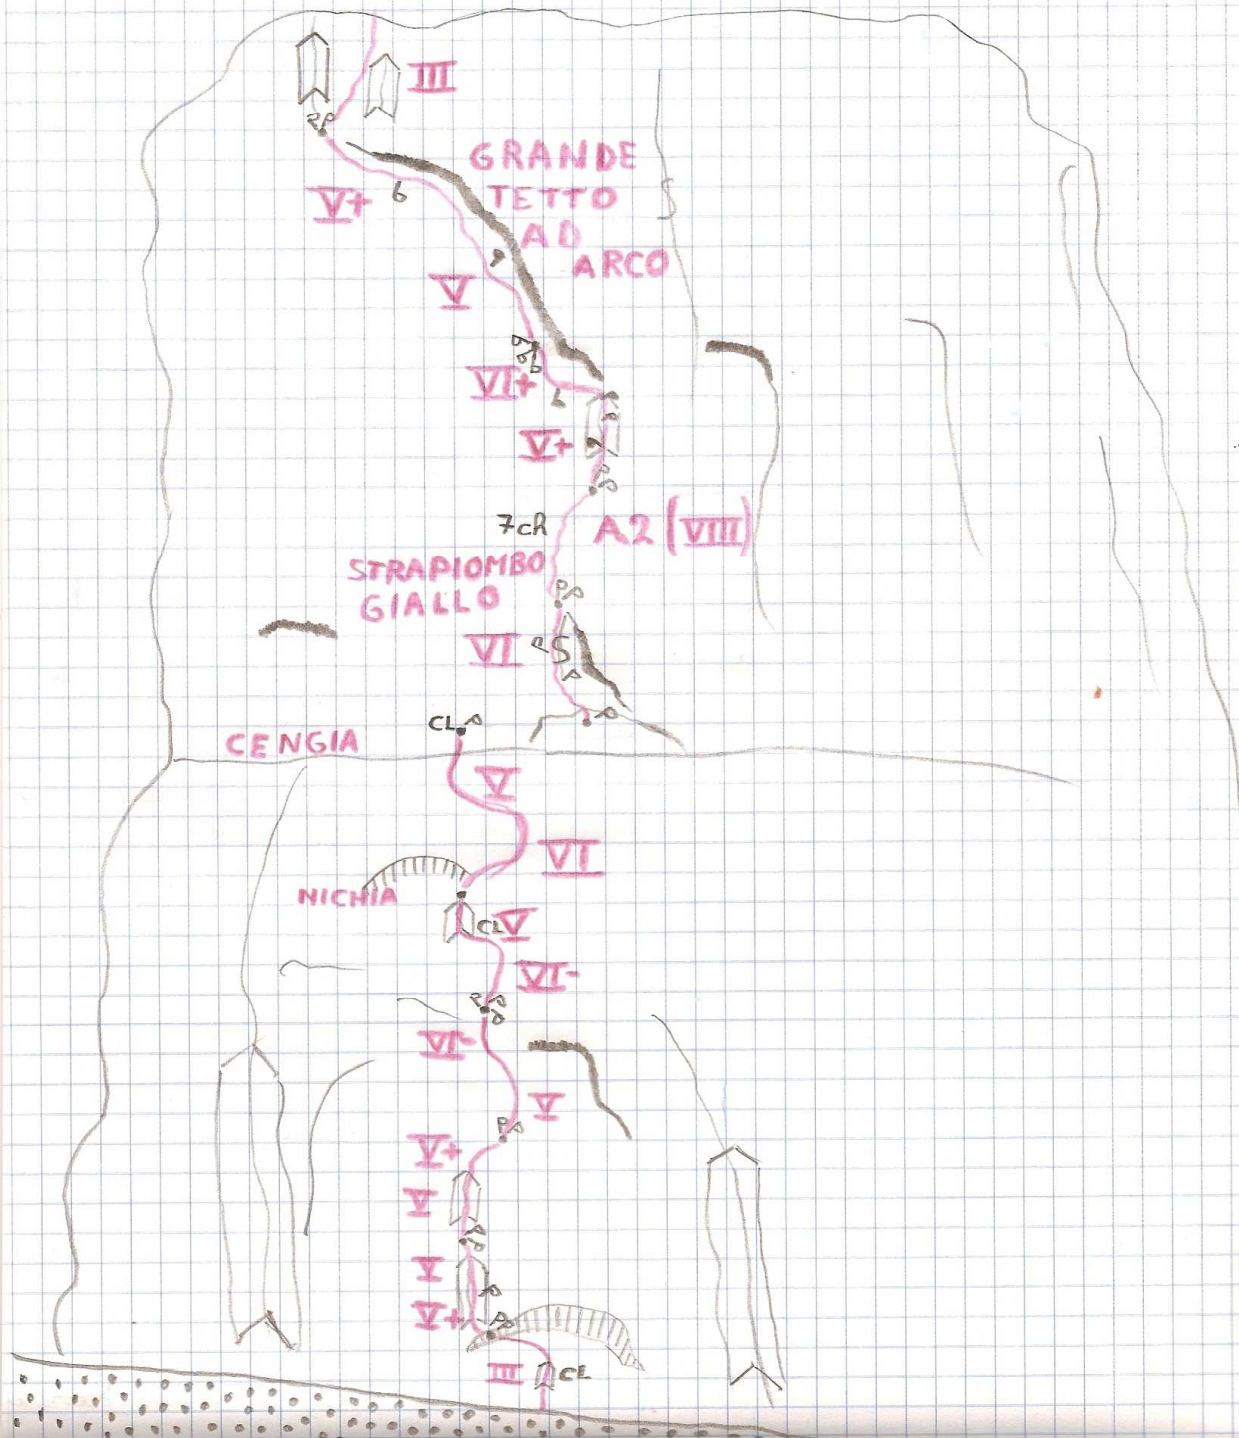 III
GRANDE
TETTO
V+
6
AD
ARCO
V
VI+
V+
7ch
A2 (VIII)
STRAPIOMBO
GIALLO
VI
S
CL
CENGIA
V
VI
NICHIA
CL V
VI-
VI-
V
V+
V
V
V+
III
CL